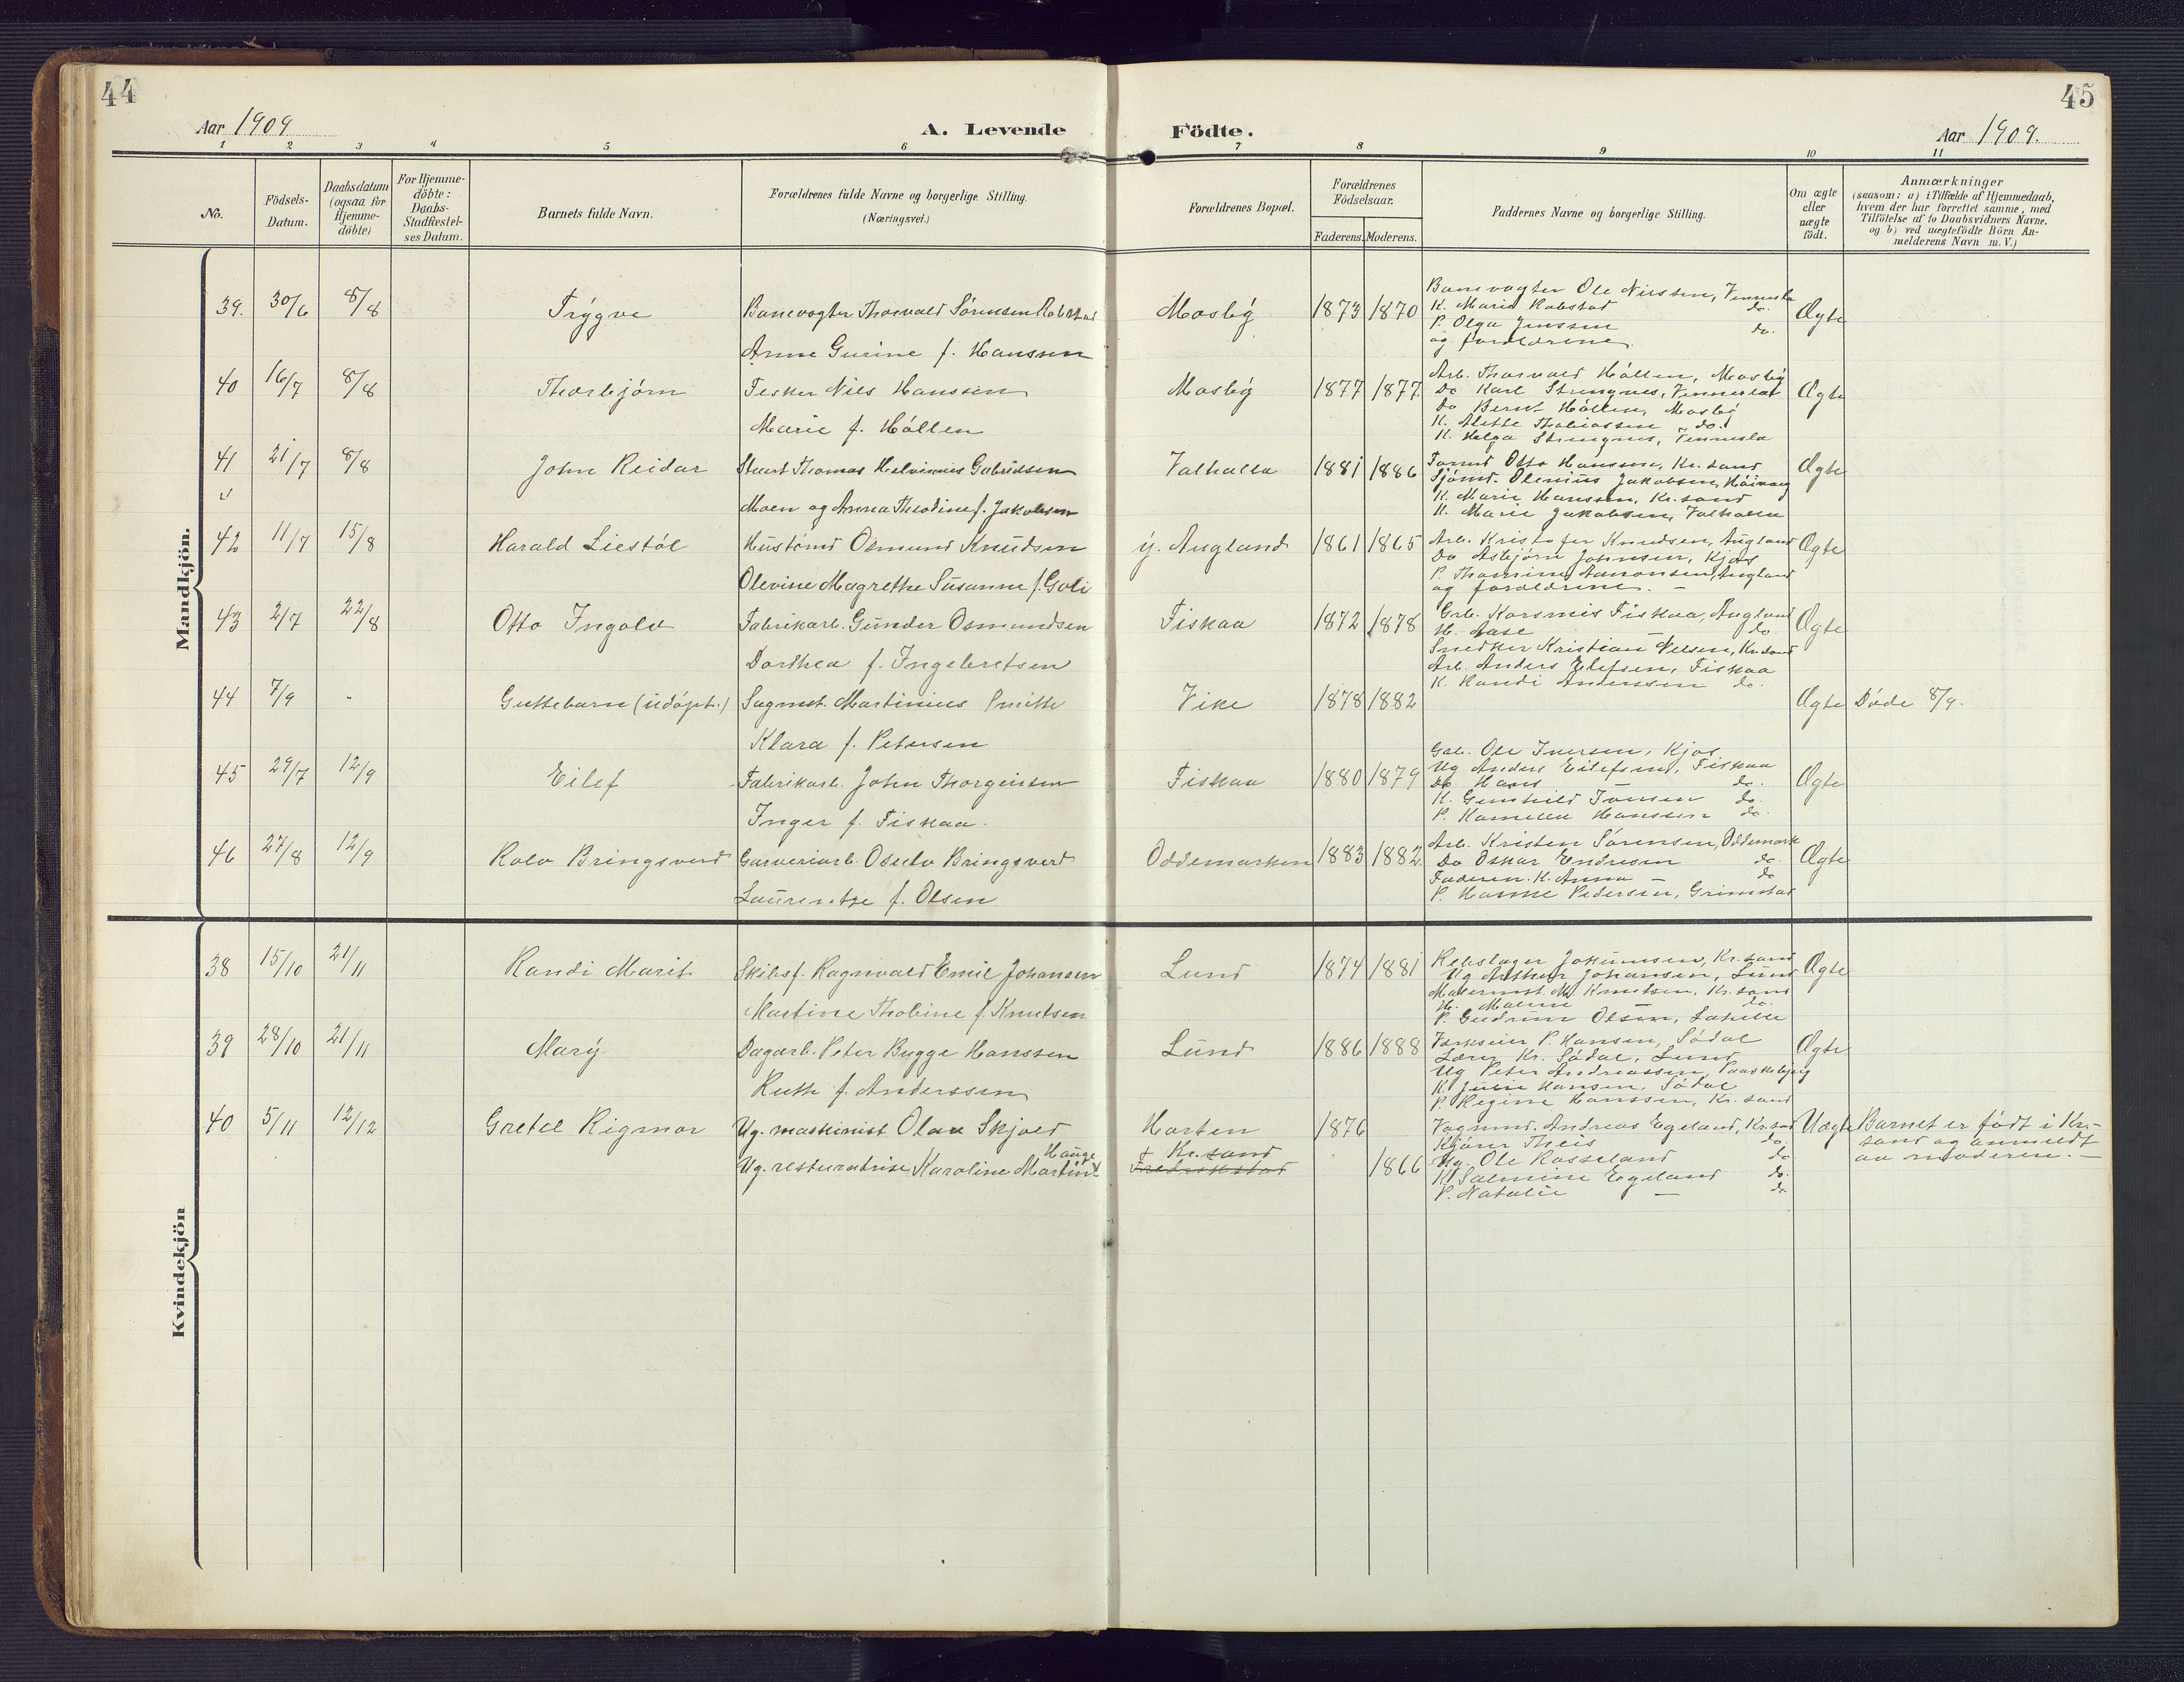 44
45
Aar 1909
A. Levende Födte.
Aar 1909.
1 2 3 4 5 6 7 8 9 10 11
No.
Födsels-Datum.
Daabsdatum (ogsaa for Hjemme-döbte)
For Hjemme-döbte: Daabs-Stadfæstel-ses Datum.
Barnets fulde Navn.
Forældrenes fulde Navne og borgerlige Stilling.
(Næringsvei.)
Forældrenes Bopæl.
Forældrenes Födselsaar.
Faderens. Moderens.
Faddernes Navne og borgerlige Stilling.
Om ægte eller uægte födt.
Anmærkninger
(saasom: a) i Tilfælde af Hjemmedaab,
hvem der har forrettet samme, med
Tilföielse af to Daabsvidners Navne.
og b) ved uægtefödte Börn An-
melderens Navn m. V.)
Mandkjön.
39. 30/6 8/8 Trygve Banevogter Thorvald Sørensen Robstad
Anne Gurine f. Hanssen
Mosby 1873 1870
Banevogter Ole Nilssen, Vennesla
K. Marie Robstad do.
P. Olga Jenssen do.
og forældrene.
Ægte
40 16/7 8/8 Thorbjørn Fesker Nils Hanssen
Marie f. Høllen
Mosby 1877 1877.
Arb. Thorvald Høllen, Mosby
Do Karl Strengnes, Vennesla
Do Bernt Høllen, Mosby
K. Alette Thobiassen do.
K. Helga Strengnes, Vennesla
Ægte
41 21/7 8/8 John Reidar Stuert Thomas Gabrielsen
Moen og Anna Theodine f. Jakobsen
Valhalla 1881 1886
Otto Hanssen, Kr.sand
Sjømd. Olenius Jakobsen,
K. Marie Hanssen, Kr.sand
K. Marie Jakobsen, Valhalla
Ægte
42 11/7 15/8 Harald Liestøl Hustømd Osmund Knudsen
Olevine Magrethe Susanne f. Goli
y. Augland 1861 1865
Arb. Kristofer Knudsen, Augland
Do Asbjørn Johnsen, Kjos
P. Thomine Aanonsen, Augland
og forældrene. –
Ægte
43 2/7 22/8 Otto Ingolv Fabrikarb. Gunder Osmundsen
Dorthea f. Ingebretsen
Fiskaa 1872 1878
Grb. Fiskaa, Augland
K. Aase – do
Snedker Kristian Nilsen, Kr.sand
Arb. Anders Elefsen, Fiskaa
K. Randi Anderssen do.
Ægte
44 7/9 - Guttebarn (udöpt.) Sagmst. Martinius Smith
Klara f. Petersen
Vike 1878 1882
Ægte Døde 8/9.
45 29/7 12/9 Eilef Fabrikarb. John Thorgeirsen
Inger f. Fiskaa.
Fiskaa 1880 1879
Grb. Ole Iversen, Kjos
Ug Anders Eilefsen, Fiskaa
Do Hans – do.
K. Gunhild Iversen do.
P. Kamilla Hanssen do.
Ægte
46 27/8 12/9 Rolv Bringsverd Garveriarb. Osulv Bringsverd
Laurentze f. Olsen
Oddemarken 1883 1882.
Arb. Kristen Sørensen, Oddemark
Do Oskar Endresen do.
Faderen. K. Anna – do
P. Hanne Pedersen, Grimstad
Ægte
Kvindekjön
38 15/10 21/11 Randi Marit Skibsf. Ragnvald Emil Johansen
Martine Thobine f. Knutsen
Lund 1874 1881
Rebslager Jokumsen, Kr.sand
Ug Arthur Johansen, Lund
Malermst. M. Knutsen, Kr.sand
K. Malene – do.
P. Gudrun Olsen,
Ægte
39 28/10 21/11 Mary Dagarb. Peter Bugge Hanssen
Ruth f. Anderssen
Lund 1886 1888
P. Hansen, Sødal
Lærer Kr. Sødal, Lund
Ug Peter Andreassen,
K. Julie Hansen, Sødal
P. Regine Hanssen, Kr.sand
Ægte
40 5/11 12/12 Gretel Rigmor Ug. maskinist Olav Skjold
Hauge
Ug. resturatrise Karoline Martine
Horten
+ Kr.sand
Fredrikstad
1876
1866
Vognmd. Andreas Egeland, Kr.sand
Kjører Theis do.
Ug. Ole Rosseland do
K. Salmine Egeland do.
P. Natalie – do.
Uægte Barnet er født i Kr.-
sand og anmeldt
av moderen. –